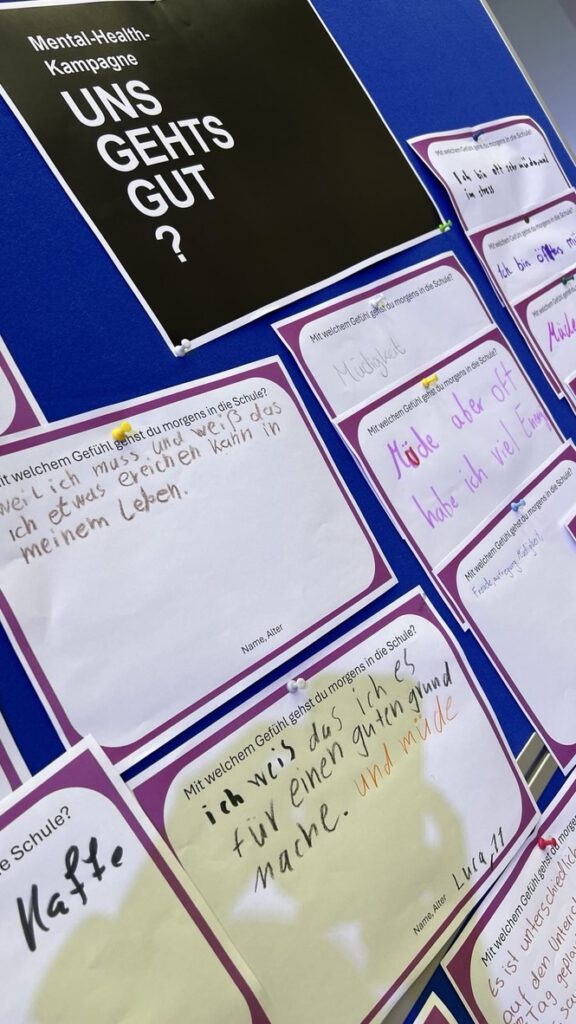 Mental-Health-
Kampagne
UNS
GEHTS
GUT
?
Mit welchem Gefühl gehst du morgens in die Schule?
Ich bin oft sehr müde und
im stress
Mit welchem Gefühl gehst du morgens in die
Ich bin öfters mü
Mit welchem Gefühl gehst du
Müde
Mit welchem Gefühl gehst du morgens in die Schule?
Müdigkeit
Mit welchem Gefühl gehst du morgens in die Schule?
Müde aber oft
habe ich viel Energ
Mit welchem Gefühl gehst du morgens in die
Freude, aufregung, Müdigkeit,
Mit welchem Gefühl gehst du morgens in die Schule?
weil ich muss und weiß das
ich etwas ereichen kann in
meinem Leben.
Name, Alter
Mit welchem Gefühl gehst du morgens in die Schule?
ich weis das ich es
für einen guten grund
mache. und müde
Name, Alter Luca, 11
e Schule?
Kaffe
Mit welchem Gefühl gehst du morgens
Es ist unterschiedlich
auf den Unterric
Tag gepla